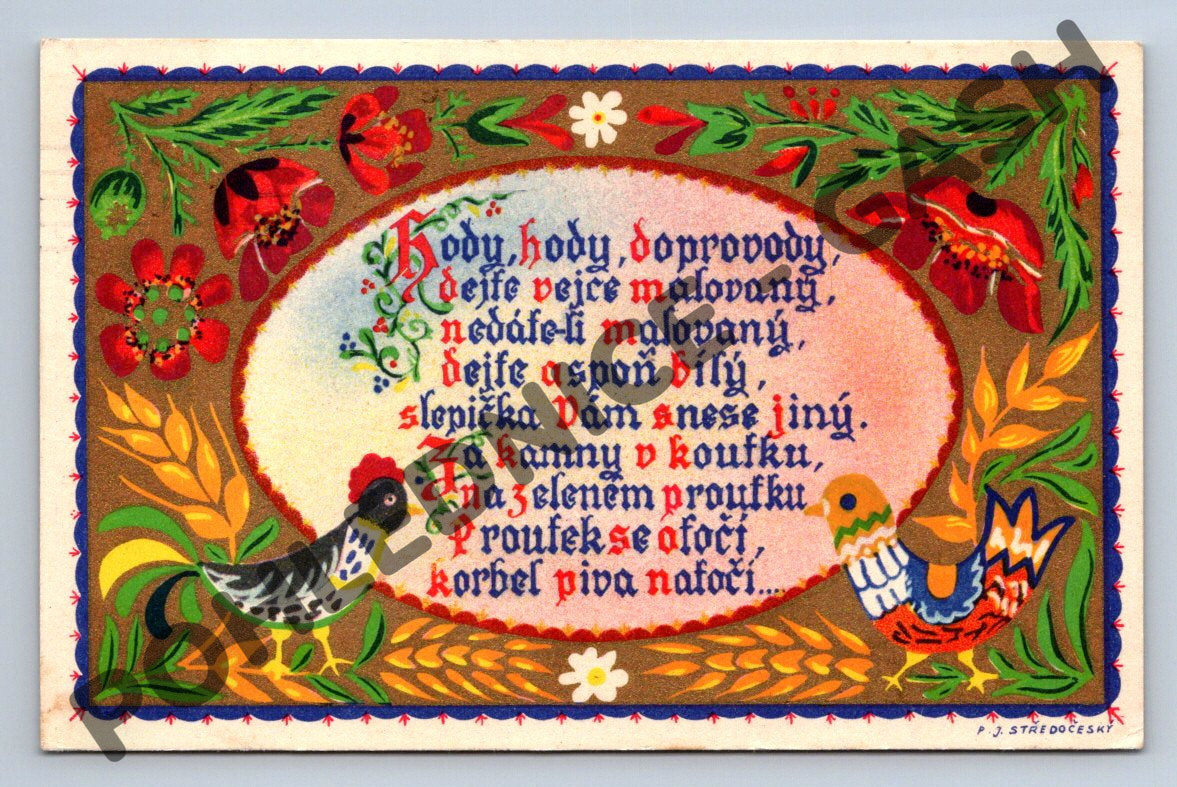 Hody, hody, doprovody,
dejte vejce malovaný,
nedáte-li malovaný,
dejte aspoň bílý,
slepička Vám snese jiný.
Za kamny v koutku,
na zeleném proutku
Proutek se otočí,
korbel piva natočí....
P.J. STŘEDOČESKÝ
POHLEDNICE - CASH